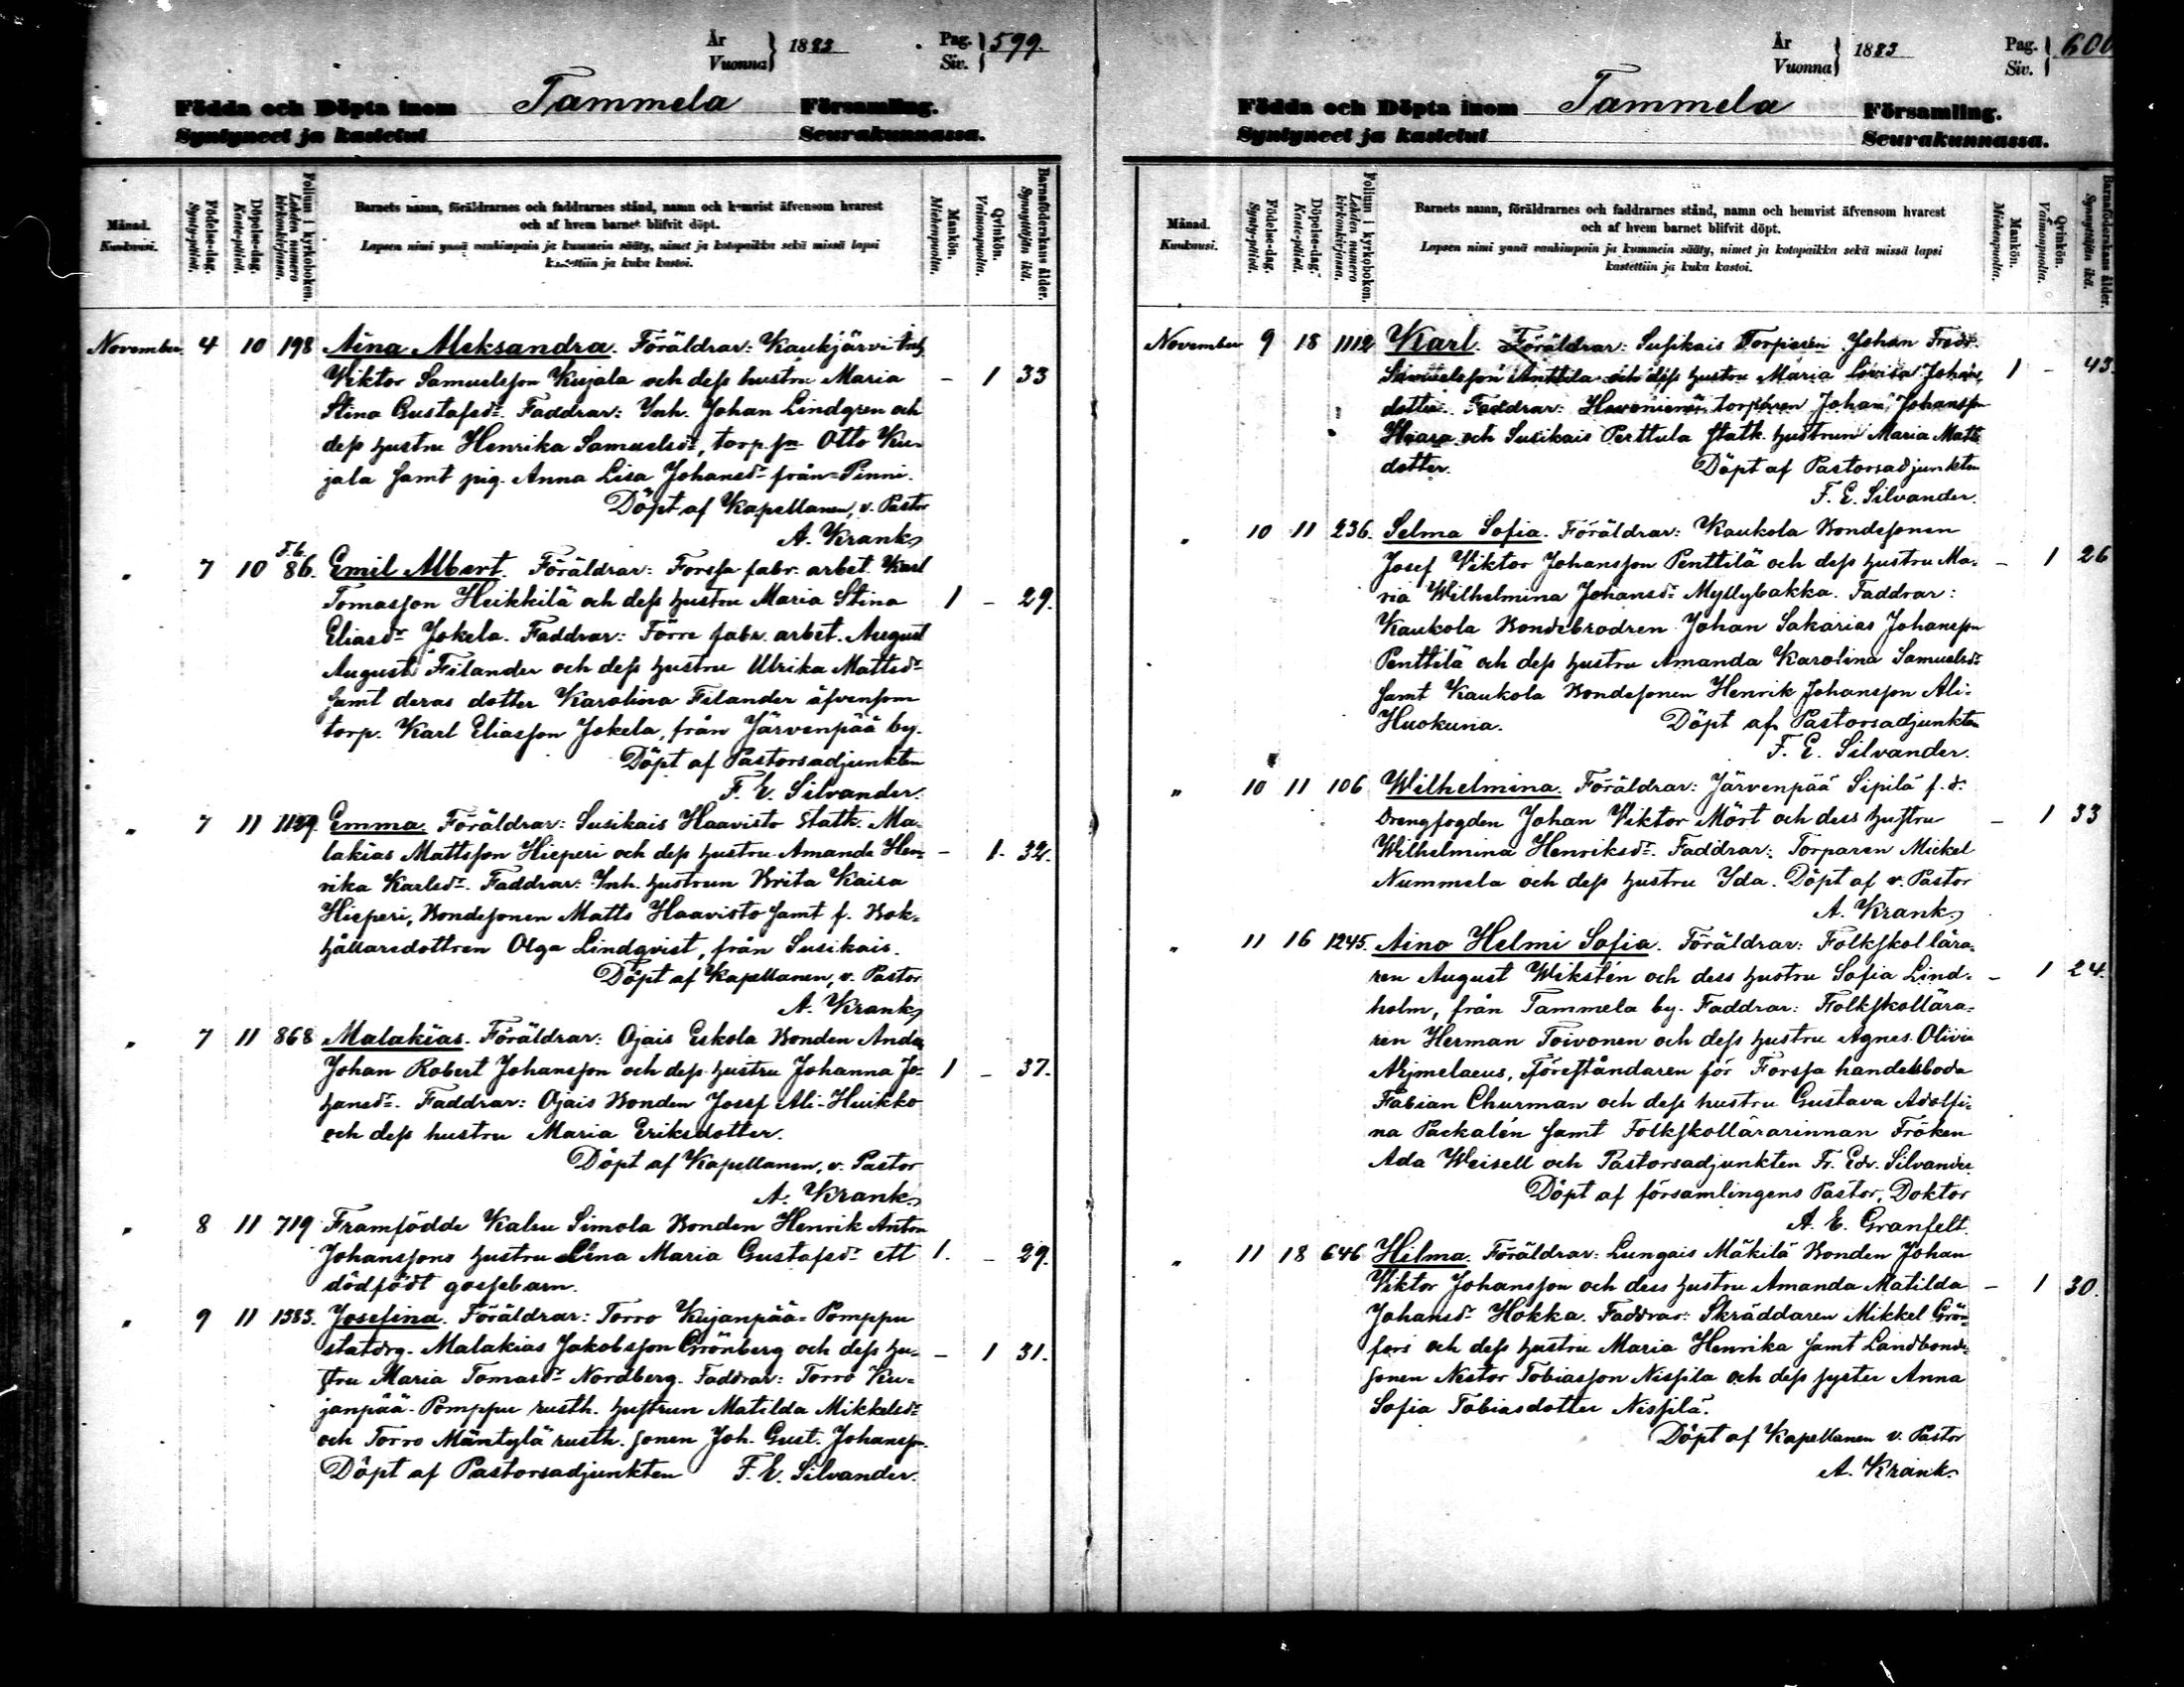 År
Vuonna } 1883
Pag.
Siv. } 599.
Födda och Döpta inom Tammela Församling.
Syntyneet ja kastetut Seurakunnassa.
Månad.
Kuukausi.
Födelse-dag.
Synty-päivä.
Döpelse-dag.
Kaste-päivä.
Folium i kyrkoboken.
Lehden numero kirkonkirjassa.
Barnets namn, föräldrarnes och faddrarnes stånd, namn och hemvist äfvensom hvarest
och af hvem barnet blifvit döpt.
Lapsen nimi ynnä vanhimpain ja kummein sääty, nimet ja kotopaikka sekä missä lapsi
kastettiin ja kuka kastoi.
Mankön.
Miehenpuolta.
Qvinkön.
Vaimonpuolta.
Barnaföderskans ålder.
Synnyttäjän ikä.
November. 4 10 198 Aina Aleksandra. Föräldrar: Kaukjärvi Inh.
Wiktor Samuelsson Kujala och dess hustru Maria – 1 33
Stina Gustafsdr. Faddrar: Inh. Johan Lindgren och
dess hustru Henrika Samuelsdr, torp. sn Otto Ku-
jala samt pig. Anna Lisa Johansdr från Pinni.
Döpt af Kapellanen, v. Pastor
A. Krank
" 7 10 F.b. 86. Emil Albert. Föräldrar: Forssa fabr. arbet. Karl
Tomasson Heikkilä och dess hustru Maria Stina 1 – 29.
Eliasdr Jokela. Faddrar: Förre fabr. arbet. August
August Filander och dess hustru Ulrika Mattsdr
samt deras dotter Karolina Filander äfvensom
torp. Karl Eliasson Jokela, från Järvenpää by.
Döpt af Pastorsadjunkten
F. E. Silvander.
" 7 11 1129. Emma. Föräldrar: Susikais Haavisto statk. Ma-
lakias Mattsson Hieperi och dess hustru Amanda Hen- – 1. 32.
rika Karlsdr. Faddrar: Inh. hustrun Brita Kaisa
Hieperi, Bondesonen Matts Haavisto samt f. Bok-
hållaresdottren Olga Lindqvist, från Susikais.
Döpt af Kapellanen, v. Pastor
A. Krank
" 7 11 868 Malakias. Föräldrar: Ojais Eskola Bonden Anders
Johan Robert Johansson och dess hustru Johanna Jo- 1 – 37.
hansdr. Faddrar: Ojais Bonden Josef Ali-Huikko
och dess hustru Maria Eriksdotter.
Döpt af Kapellanen, v. Pastor
A. Krank
" 8 11 719 Framfödde Kaleu Simola Bonden Henrik Anton
Johanssons hustru Lina Maria Gustafsdr ett 1. – 29.
dödfödt gossebarn.
" 9 11 1383. Josefina. Föräldrar: Torro Kujanpää-Pomppu
statdrg. Malakias Jakobsson Grönberg och dess hu- – 1 31.
stru Maria Tomasdr Nordberg. Faddrar: Torro Ku-
janpää-Pomppu rusth. hustrun Matilda Mikkelsdr
och Torro Mäntylä rusth. sonen Joh. Gust. Johansson.
Döpt af Pastorsadjunkten F. E. Silvander.
År
Vuonna } 1883
Pag.
Siv. } 600
Födda och Döpta inom Tammela Församling.
Syntyneet ja kastetut Seurakunnassa.
Månad.
Kuukausi.
Födelse-dag.
Synty-päivä.
Döpelse-dag.
Kaste-päivä.
Folium i kyrkoboken.
Lehden numero kirkonkirjassa.
Barnets namn, föräldrarnes och faddrarnes stånd, namn och hemvist äfvensom hvarest
och af hvem barnet blifvit döpt.
Lapsen nimi ynnä vanhimpain ja kummein sääty, nimet ja kotopaikka sekä missä lapsi
kastettiin ja kuka kastoi.
Mankön.
Miehenpuolta.
Qvinkön.
Vaimonpuolta.
Barnaföderskans ålder.
Synnyttäjän ikä.
November 9 18 1112 Karl. Föräldrar: Susikais Torparen Johan Fredr.
Samuelsson Anttila och dess hustru Maria Lovisa Johans 1 – 43.
dotter. Faddrar: torparen Johan Johansson
och Susikais Perttula statk. hustrun Maria Matts
dotter. Döpt af Pastorsadjunkten
F. E. Silvander.
" 10 11 236. Selma Sofia. Föräldrar: Kaukola Bondesonen
Josef Viktor Johansson Penttilä och dess hustru Ma- – 1 26
ria Wilhelmina Johansdr Myllybakka. Faddrar:
Kaukola Bondebrodren Johan Sakarias Johansson
Penttilä och dess hustru Amanda Karolina Samuelsdr
samt Kaukola Bondesonen Henrik Johansson Ali-
Huokuna. Döpt af Pastorsadjunkten
F. E. Silvander.
" 10 11 106 Wilhelmina. Föräldrar: Järvenpää Sipilä f. d.
Drengfogden Johan Viktor Mört och dess hustru – 1 33
Wilhelmina Henriksdr. Faddrar: Torparen Mickel
Nummela och dess hustru Ida. Döpt af v. Pastor
A. Krank
" 11 16 1245. Aino Helmi Sofia. Föräldrar: Folkskollära-
ren August Wikstén och dess hustru Sofia Lind- – 1 24.
holm, från Tammela by. Faddrar: Folkskollära-
ren Herman Toivonen och dess hustru Agnes Olivia
Aljmelaeus, Föreståndaren för Forssa handelsboda
Fabian Churman och dess hustru Gustava Adolfi-
na Packalén samt Folkskollärarinnan Fröken
Ada Weisell och Pastorsadjunkten Fr. Edv. Silvander
Döpt af församlingens Pastor, Doktor
A. E. Granfelt.
" 11 18 646 Hilma. Föräldrar: Lungais Mäkilä Bonden Johan
Viktor Johansson och dess hustru Amanda Matilda – 1 30.
Johansdr Hokka. Faddrar: Skräddaren Mikkel Grön-
fors och dess hustru Maria Henrika samt Landbonde-
sonen Nestor Tobiasson Nissilä och dess syster Anna
Sofia Tobiasdotter Nissilä.
Döpt af Kapellanen v. Pastor
A. Krank.